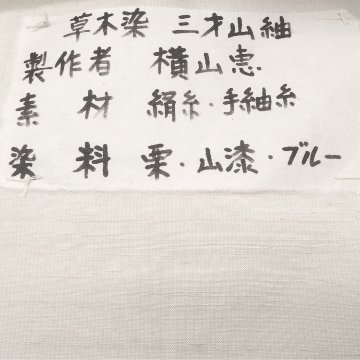 草木染 三才山紬
製作者 横山恵
素材 絹糸・手紬糸
染料 栗・山漆・ブルー